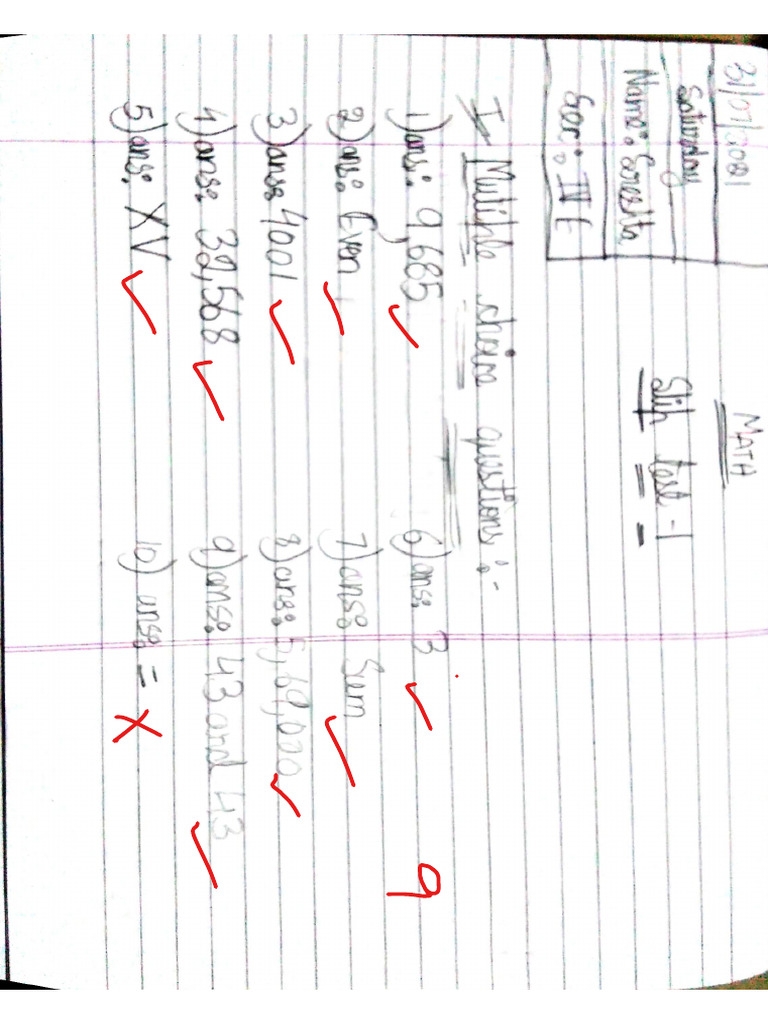 MATH
31/07/2021
Saturday
Name: Sresth
Sec: IV E
Slip test-1
I Multiple choice questions :-
1) ans: 9,685
2) ans: Even
3) ans: 4001
4) ans: 32,568
5) ans: XV
6) ans: 3
7) ans: Sum
8) ans: 5,69,000
9) ans: 43 and 43
10) ans: =
9